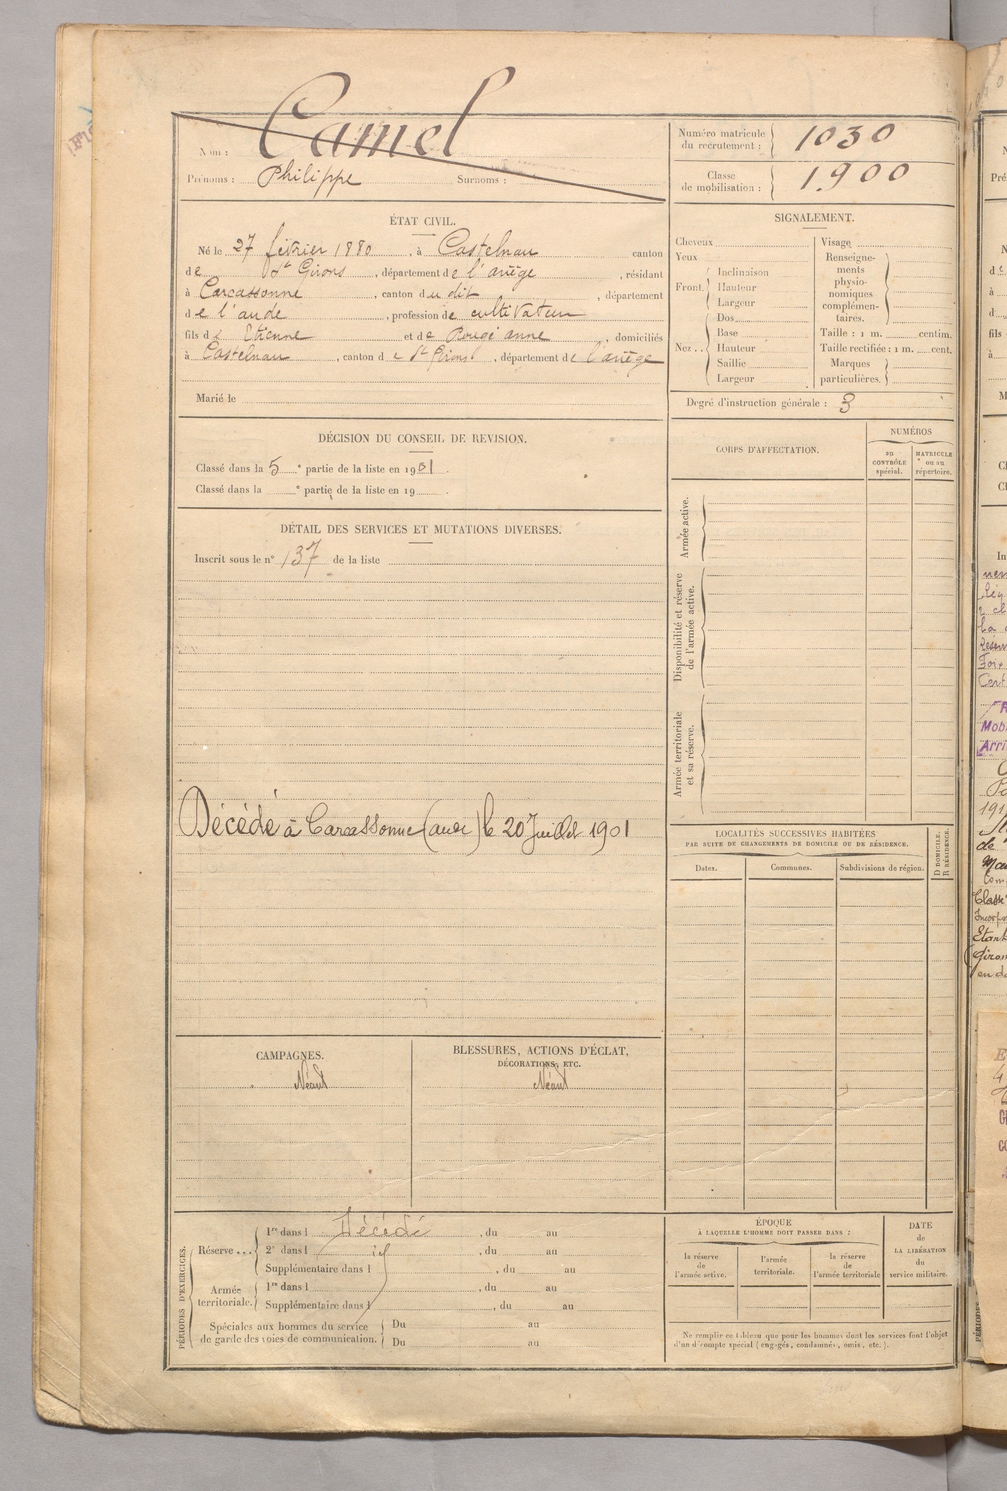 Nom : Camel
Prénoms : Philippe Surnoms :
Numéro matricule du recrutement : 1030
Classe de mobilisation : 1900
ÉTAT CIVIL.
Né le 27 février 1880, à Castelnau canton
de St Girons, département de l'ariège, résidant
à Carcassonne, canton du dit, département
de l'aude, profession de cultivateur
fils de Etienne et de Rougé anne, domiciliés
à Castelnau, canton de St Girons, département de l'ariège
Marié le
SIGNALEMENT.
Cheveux
Yeux
Front. Inclinaison
Hauteur
Largeur
Nez.. Dos
Base
Hauteur
Saillie
Largeur
Visage
Renseigne-
ments
physio-
nomiques
complémen-
taires.
Taille : 1 m. centim.
Taille rectifiée : 1 m. cent.
Marques
particulières.
Degré d'instruction générale : 3
DÉCISION DU CONSEIL DE REVISION.
Classé dans la 5e partie de la liste en 1901
Classé dans la e partie de la liste en 19
DÉTAIL DES SERVICES ET MUTATIONS DIVERSES.
Inscrit sous le n° 137 de la liste
Décédé à Carcassonne (aude) le 20 Juillet 1901
CORPS D'AFFECTATION.
NUMÉROS
au CONTRÔLE spécial.
MATRICULE ou au répertoire.
Armée active.
Disponibilité et réserve de l'armée active.
Armée territoriale et sa réserve.
LOCALITÉS SUCCESSIVES HABITÉES
PAR SUITE DE CHANGEMENTS DE DOMICILE OU DE RÉSIDENCE.
Dates. Communes. Subdivisions de région.
D DOMICILE.
R RÉSIDENCE.
CAMPAGNES.
Néant
BLESSURES, ACTIONS D'ÉCLAT,
DÉCORATIONS, ETC.
Néant
PÉRIODES D'EXERCICES.
Réserve ... 1re dans l Décédé, du au
2e dans l, du au
Supplémentaire dans l, du au
Armée territoriale. 1re dans l, du au
Supplémentaire dans l, du au
Spéciales aux hommes du service
de garde des voies de communication.
Du au
Du au
ÉPOQUE
À LAQUELLE L'HOMME DOIT PASSER DANS :
la réserve de l'armée active.
l'armée territoriale.
la réserve de l'armée territoriale
DATE
de
LA LIBÉRATION
du
service militaire.
Ne remplir ce tableau que pour les hommes dont les services font l'objet
d'un décompte spécial (engagés, condamnés, omis, etc.).